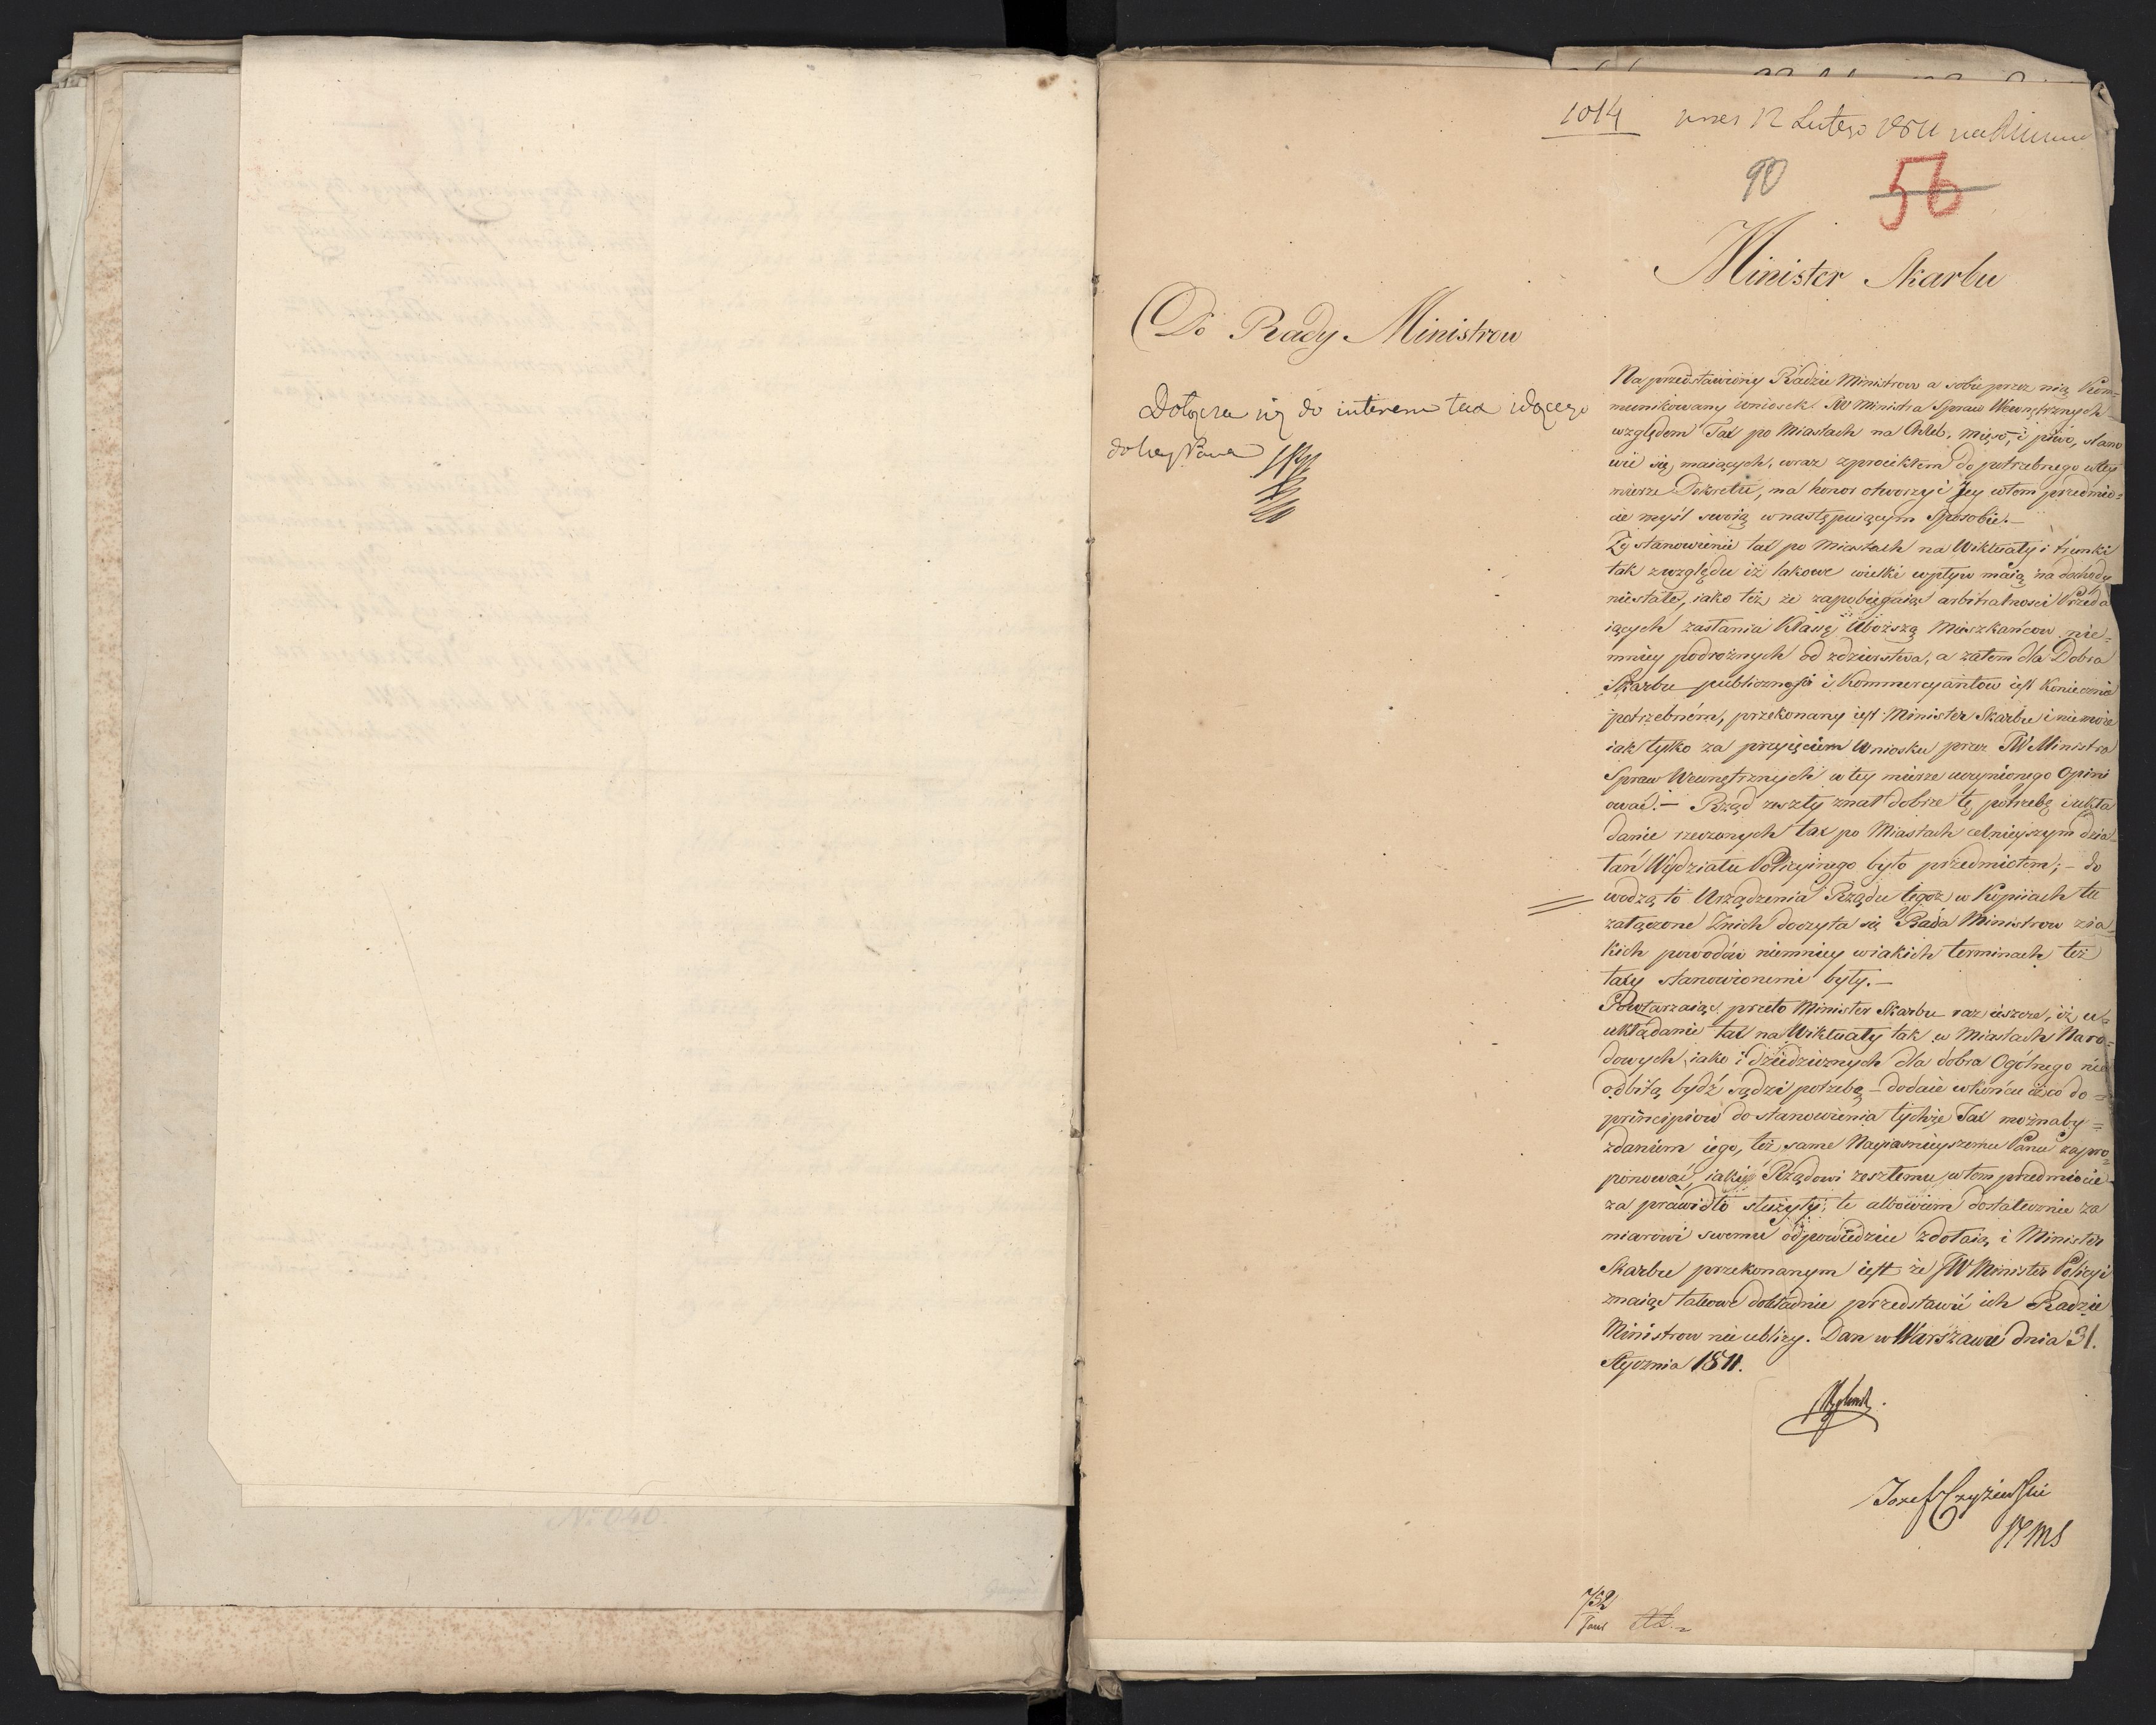 1014 12 Lutego 1811
90 56
Minister Skarbu
Do Rady Ministrow
Dołącza się do interesu tax idącego
do Nay. Pana
Na przedstawiony Radzie Ministrow a sobie przez nią kom=
munikowany wniosek JW Ministra Spraw Wewnętrznych
względem Tax po Miastach na Chleb, mięso, i piwo, stano
wić się maiących, wraz z proiektem do potrzebnego w tey
mierze Dekretu, ma honor otworzyć Jey w tem przedmio=
cie myśl swoią w następuiącym sposobie.—
Iż stanowienie tax po Miastach na Wiktuały i trunki
tak z względu iż takowe wielki wpływ maią na dochody
niestałe, iako też że zapobiegaiąc arbitralności Przeda
iących zasłania Klassę Uboższą Mieszkańcow nie=
mniey podrożnych od zdzierstwa, a zatem dla Dobra
Skarbu publicznego i Kommercyantow iest koniecznie
potrzebném, przekonany iest Minister Skarbu i nie może
iak tylko za przyięciem Wniosku przez JW Ministra
Spraw Wewnętrznych w tey mierze uczynionego Opini
ować.— Rząd zeszły znał dobrze tę potrzebę i ukła
danie rzeczonych tax po Miastach celnieyszym dzia=
łań Wydziału Policyinego było przedmiotem;— do
wodzą to Urządzenia Rządu tegoż w Kopiiach tu
załączone Z nich doczyta się Rada Ministrow z ia=
kich powodów niemniey w iakich terminach też
taxy stanowionemi były.—
Powtarzaiąc przeto Minister Skarbu raz ieszcze, iż u=
układanie tax na Wiktuały tak w Miastach Naro=
dowych, iako i dziedzicznych dla dobra Ogólnego nie
odbitą bydź sądzi potrzebą — dodaie w końcu iż co do=
principiow do stanowienia tychże Tax możnaby=
zdaniem iego, też same Nayiaśnieyszemu Panu zapro=
ponować, iakie Rządowi zeszłemu w tem przedmiocie
za prawidło służyły; te albowiem dostatecznie za
miarowi swemu odpowiedzieć zdołaią, i Minister
Skarbu przekonanym iest że JW Minister Policyi
znaiąc takowe dokładnie przedstawić ich Radzie
Ministrow nie ubliży. Dan w Warszawie dnia 31.
Stycznia 1811.
Jozef Czyżewski
752